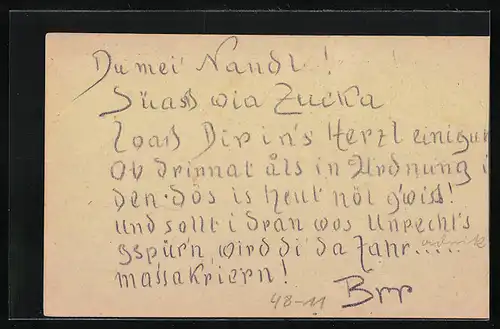 Du mei' Nandl!
Süass wia Zucka
loass Dir in's Herzl einigu
Ob drinnat åls in Urdnung i
den. Dös is heut nöt g'wiss!
Und sollt i dran wos Unrecht's
gspür'n, wird di da Zahr.....
massakriern!
Brr
48-11